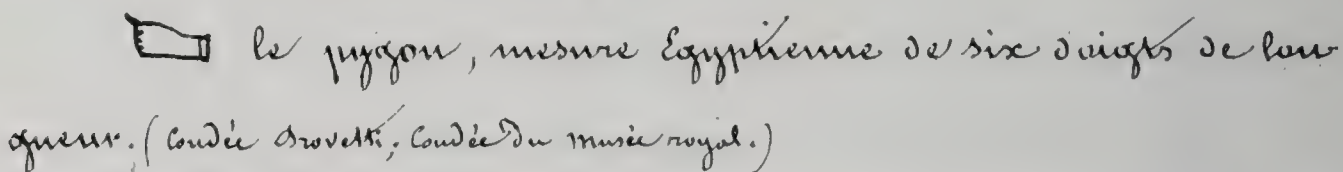 le pygon, mesure Égyptienne de six doigts de lon-
gueur. (Coudée Drovetti; Coudée du musée royal.)